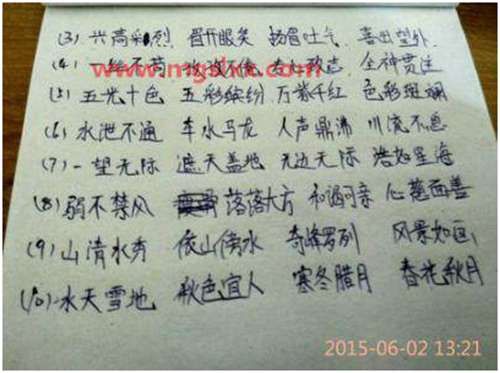 (3) 兴高彩烈 眉开眼笑 扬眉吐气 喜出望外
(4) 一丝不苟 全神贯注
www.mgsxx.com
(5) 五光十色 五彩缤纷 万紫千红 色彩斑斓
(6) 水泄不通 车水马龙 人声鼎沸 川流不息
(7) 一望无际 遮天盖地 无边无际 浩如星海
(8) 弱不禁风 落落大方 和谒可亲 心慈面善
(9) 山清水秀 依山傍水 奇峰罗列 风景如画
(10) 水天雪地 秋色宜人 寒冬腊月 春花秋月
2015-06-02 13:21